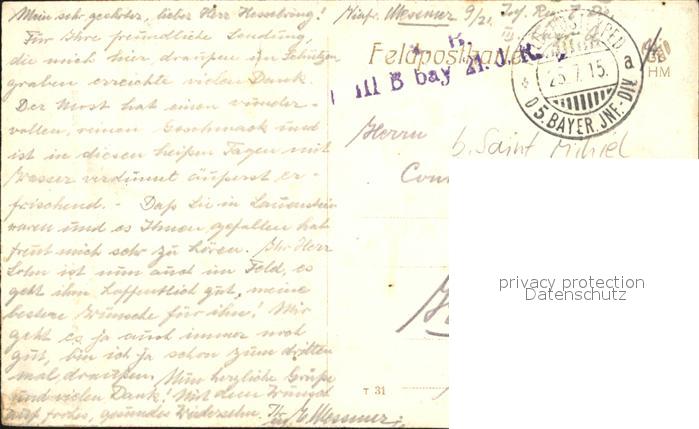 Mein sehr geehrter, lieber Herr Hesselbring!
Für Ihre freundliche Sendung,
die mich hier draußen im Schützen
graben erreichte vielen Dank.
Der Most hat einen wunder-
vollen, reinen Geschmack und
ist in diesen heißen Tagen mit
Wasser verdünnt äußerst er-
frischend. - Daß Sie in Lauenstein
waren und es Ihnen gefallen hat
freut mich sehr zu hören. Ihr Herr
Sohn ist nun auch im Feld, es
geht ihm hoffentlich gut, meine
besten Wünsche für ihn! Mir
geht es ja auch immer noch
gut, bin ich ja schon zum dritten
mal draußen. Nun herzliche Grüße
und vielen Dank! Mit dem Wunsch
auf frohes, gesundes Wiedersehn. Ihr
Messner.
Messner 9/21
Feldpostkarte
III B bay 21. J. R.
25.7.15.
a
D 5. BAYER. INF.-DIV.
HM
Herrn
b. Saint Mihiel
T 31
privacy protection
Datenschutz